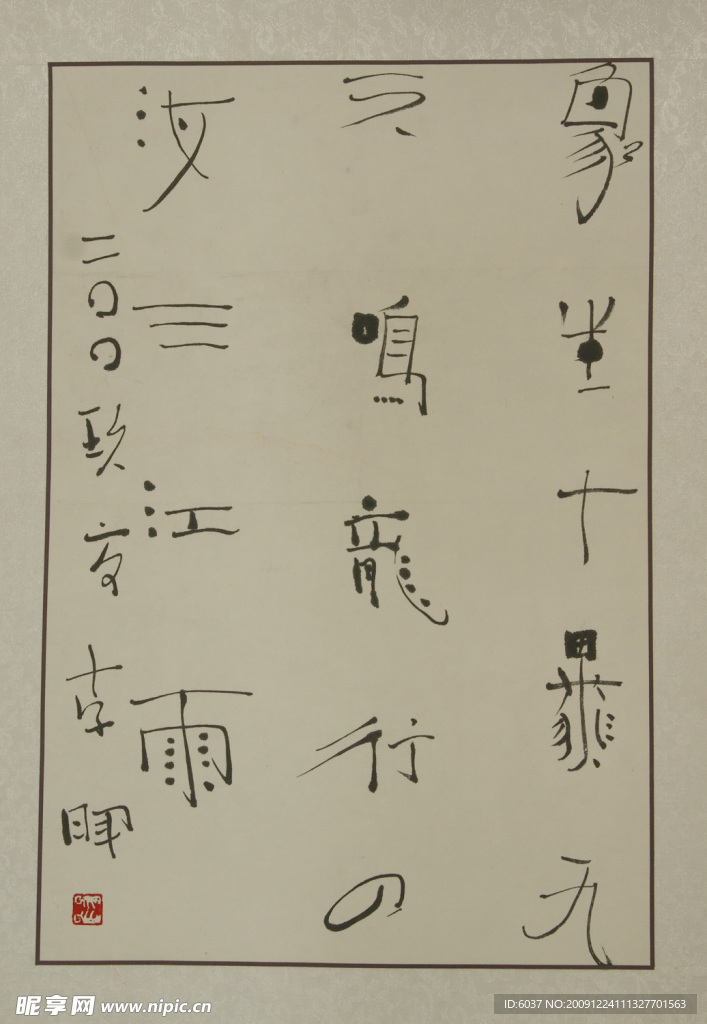 象十九
云鳴龍行四
海三江雨
二〇〇玖夏李暉
昵享网 www.nipic.cn
ID:6037 NO:20091224111327701563